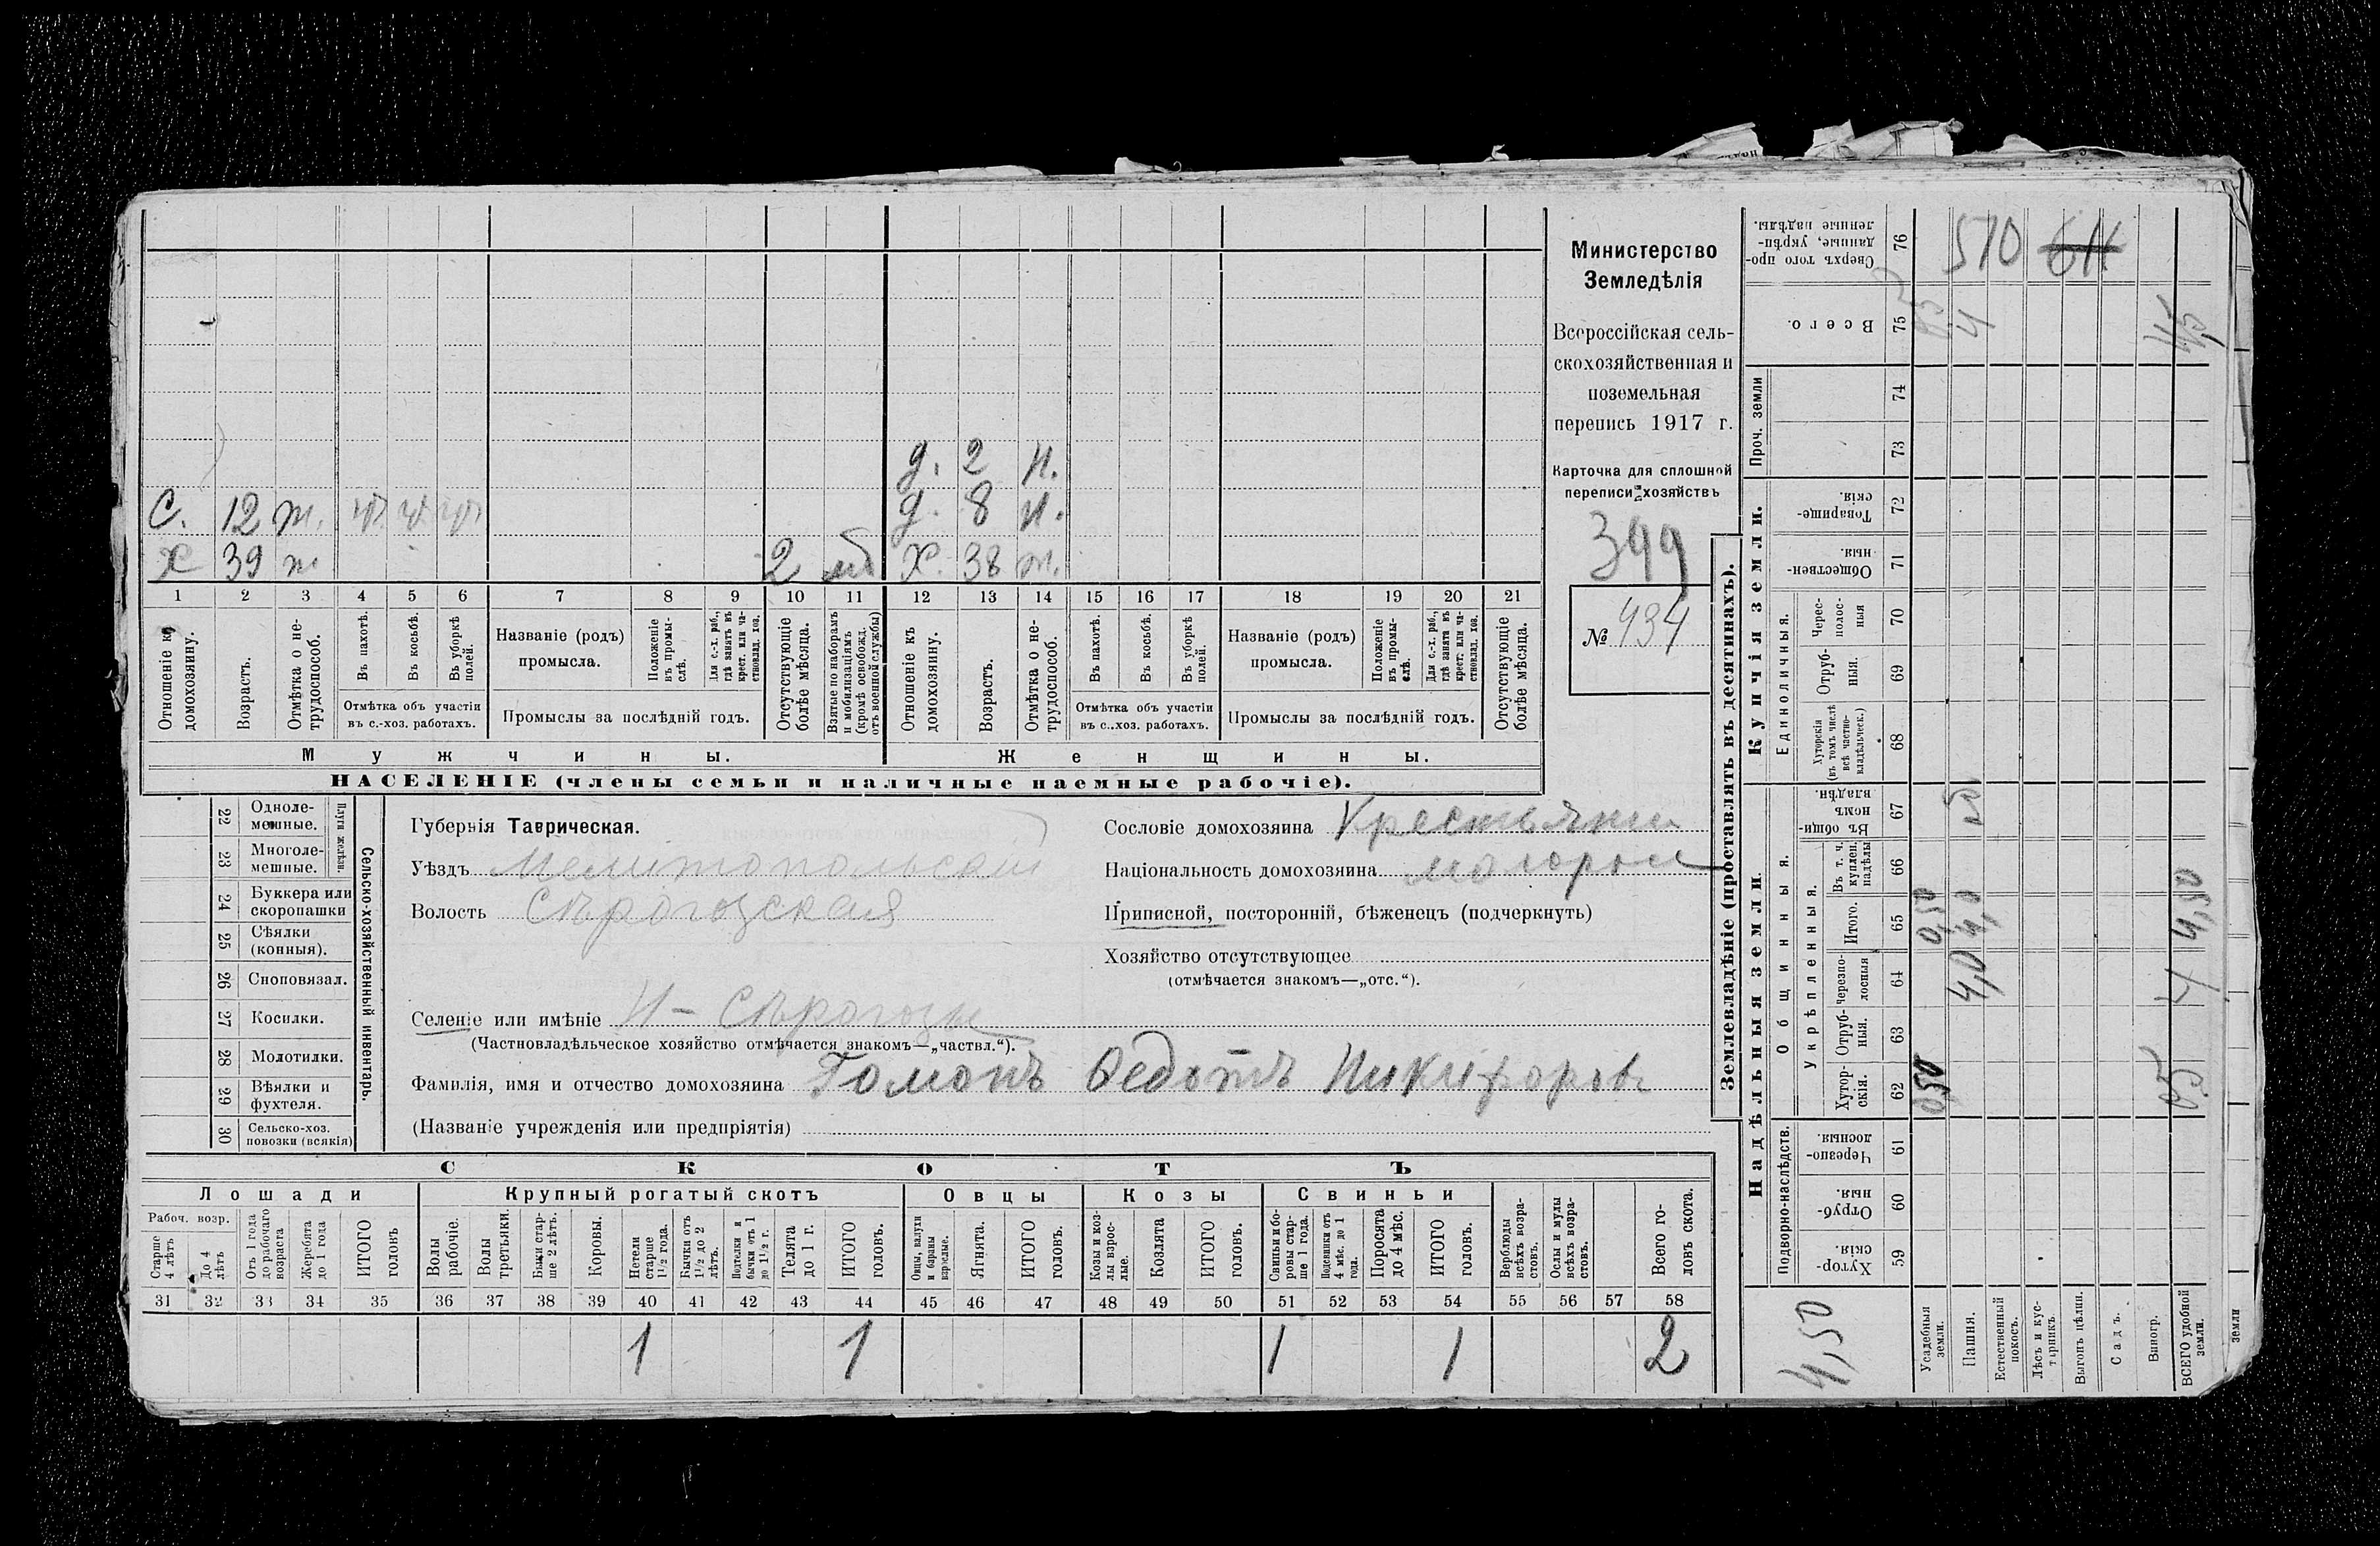 д. 2 н.
С. 12 т. д. 8 н.
х 39 т 2 мб х. 38 т.
1 2 3 4 5 6 7 8 9 10 11 12 13 14 15 16 17 18 19 20 21
Отношеніе къ домохозяину.
Возрастъ.
Отмѣтка о нетрудоспособ.
Въ пахотѣ.
Въ косьбѣ.
Въ уборкѣ полей.
Отмѣтка объ участіи
въ с.-хоз. работахъ.
Названіе (родъ)
промысла.
Положеніе въ промыслѣ.
Для с.-х. раб., гдѣ занятъ въ крест. или частновлад. хоз.
Промыслы за послѣдній годъ.
Отсутствующіе болѣе мѣсяца.
Взятые по наборамъ и мобилизаціямъ (кромѣ освобожд. отъ военной службы)
Отношеніе къ домохозяину.
Возрастъ.
Отмѣтка о нетрудоспособ.
Въ пахотѣ.
Въ косьбѣ.
Въ уборкѣ полей.
Отмѣтка объ участіи
въ с.-хоз. работахъ.
Названіе (родъ)
промысла.
Положеніе въ промыслѣ.
Для с.-х. раб., гдѣ занята въ крест. или частновлад. хоз.
Промыслы за послѣдній годъ.
Отсутствующіе болѣе мѣсяца.
Мужчины. Женщины.
НАСЕЛЕНІЕ (члены семьи и наличные наемные рабочіе).
Министерство
Земледѣлія
Всероссійская сель-
скохозяйственная и
поземельная
перепись 1917 г.
Карточка для сплошной
переписи хозяйствъ
399
№ 434
Плуги желѣзн.
22 Одноле-
мешные.
23 Многоле-
мешные.
24 Буккера или
скоропашки
25 Сѣялки
(конныя).
26 Сноповязал.
27 Косилки.
28 Молотилки.
29 Вѣялки и
фухтеля.
30 Сельско-хоз.
повозки (всякія)
Сельско-хозяйственный инвентарь.
Губернія Таврическая.
Уѣздъ Мелитопольскій
Волость Сѣрогозская
Селеніе или имѣніе Н-Сѣрогозы
(Частновладѣльческое хозяйство отмѣчается знакомъ—„частвл.“).
Фамилія, имя и отчество домохозяина Гомонъ Ѳедотъ Никифоровъ
(Названіе учрежденія или предпріятія)
Сословіе домохозяина Крестьянин
Національность домохозяина малорос
Приписной, посторонній, бѣженецъ (подчеркнуть)
Хозяйство отсутствующее
(отмѣчается знакомъ—„отс.“).
СКОТЪ
Лошади Крупный рогатый скотъ Овцы Козы Свиньи
Рабоч. возр.
Старше 4 лѣтъ
До 4 лѣтъ
Отъ 1 года до рабочаго возраста
Жеребята до 1 года
ИТОГО головъ
Волы рабочіе.
Волы третьяки.
Быки старше 2 лѣтъ.
Коровы.
Нетели старше 1½ года.
Бычки отъ 1½ до 2 лѣтъ.
Подтелки и бычки отъ 1 до 1½ г.
Телята до 1 г.
ИТОГО головъ.
Овцы, валухи и бараны взрослые.
Ягнята.
ИТОГО головъ.
Козы и козлы взрослые.
Козлята
ИТОГО головъ.
Свиньи и боровы старше 1 года.
Подсвинки отъ 4 мѣс. до 1 года.
Поросята до 4 мѣс.
ИТОГО головъ.
Верблюды всѣхъ возрастовъ.
Ослы и мулы всѣхъ возрастовъ.
Всего головъ скота.
31 32 33 34 35 36 37 38 39 40 41 42 43 44 45 46 47 48 49 50 51 52 53 54 55 56 57 58
1 1 1 1 2
Землевладѣніе (проставлять въ десятинахъ).
Сверхъ того проданные, укрѣпленные надѣлы. 76 510
Всего. 75 4
Проч. земли 74 73
Купчія земли.
Товарищескія. 72
Общественныя. 71
Единоличныя.
Чересполосныя 70
Отрубныя. 69
Хуторскія (въ томъ числѣ всѣ частновладѣльческ.) 68
Надѣльныя земли.
Общинныя.
Въ общиномъ владѣн. 67
Укрѣпленныя.
Въ т. ч. куплен. надѣлы 66
Итого. 65 0,50 4,0 4,50
Черезполосныя 64 4,0 4
Отрубныя. 63
Хуторскія. 62 0,50
Подворно-наслѣдств.
Черезполосныя. 61
Отрубныя. 60
Хуторскія. 59
4,50
Усадебныя земли.
Пашня.
Естественный покосъ.
Лѣсъ и кустарникъ.
Выгонъ цѣлин.
Садъ.
Виногр.
ВСЕГО удобной земли.
земли